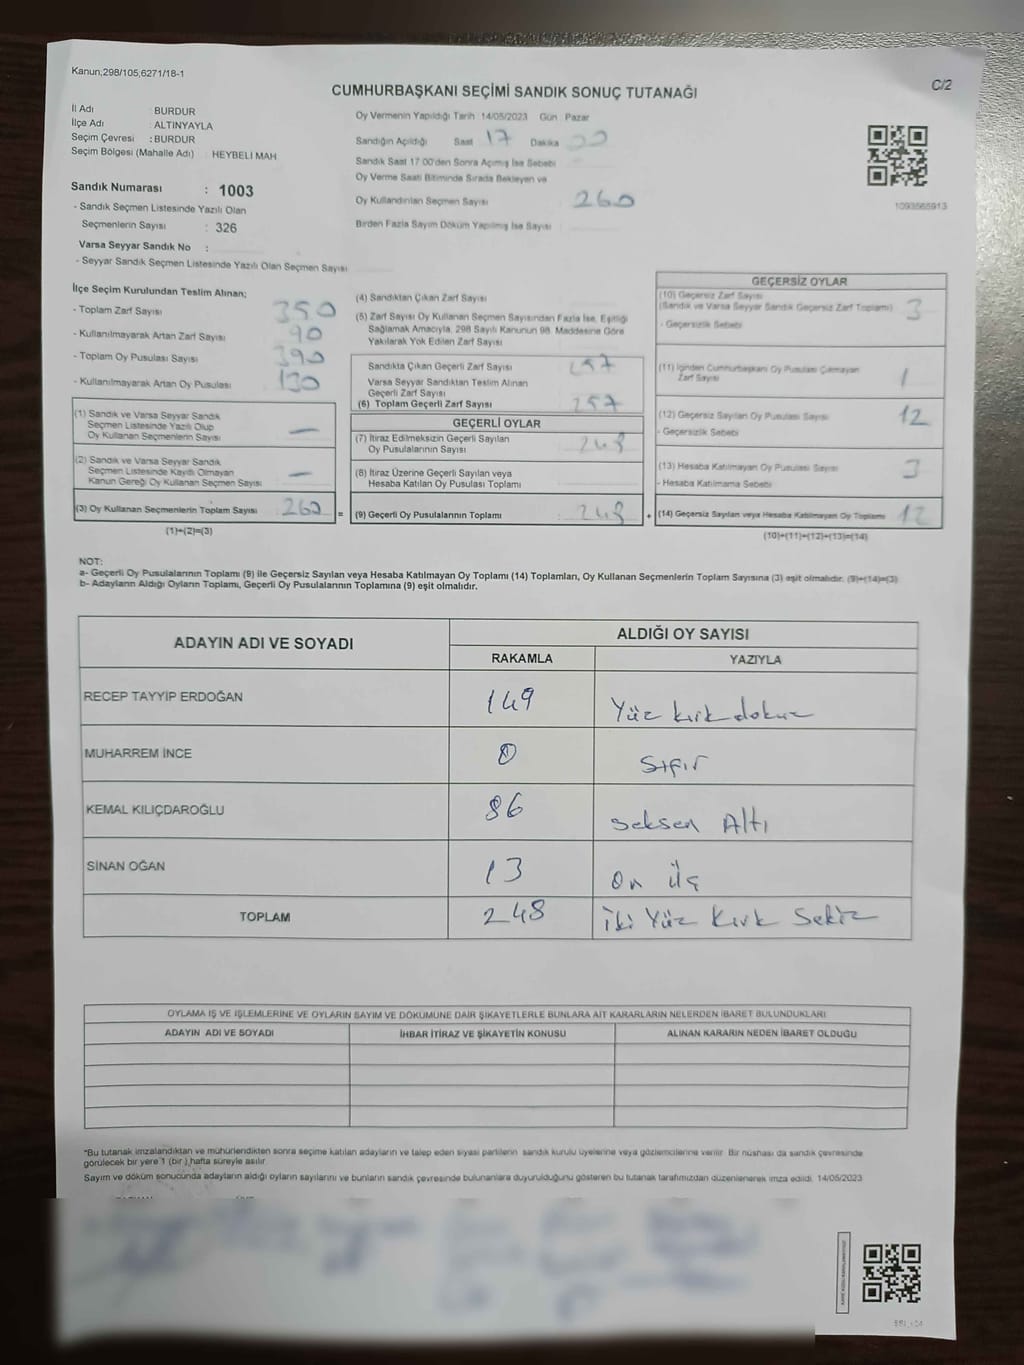 Kanun,298/105,6271/18-1
C/2
CUMHURBAŞKANI SEÇİMİ SANDIK SONUÇ TUTANAĞI
İl Adı BURDUR
İlçe Adı : ALTINYAYLA
Seçim Çevresi : BURDUR
Seçim Bölgesi (Mahalle Adı) : HEYBELİ MAH
Sandık Numarası : 1003
- Sandık Seçmen Listesinde Yazılı Olan
Seçmenlerin Sayısı : 326
Varsa Seyyar Sandık No :
- Seyyar Sandık Seçmen Listesinde Yazılı Olan Seçmen Sayısı
Oy Vermenin Yapıldığı Tarih 14/05/2023 Gün Pazar
Sandığın Açıldığı Saat 17 Dakika
Sandık Saat 17:00'den Sonra Açılmış İse Sebebi
Oy Verme Saati Bitiminde Sırada Bekleyen ve
Oy Kullandırılan Seçmen Sayısı 260
Birden Fazla Sayım Döküm Yapılmış İse Sayısı
1093565913
İlçe Seçim Kurulundan Teslim Alınan;
- Toplam Zarf Sayısı 350
- Kullanılmayarak Artan Zarf Sayısı 90
- Toplam Oy Pusulası Sayısı 390
- Kullanılmayarak Artan Oy Pusulası 130
(1) Sandık ve Varsa Seyyar Sandık
Seçmen Listesinde Yazılı Olup
Oy Kullanan Seçmenlerin Sayısı —
(2) Sandık ve Varsa Seyyar Sandık
Seçmen Listesinde Kaydı Olmayan
Kanun Gereği Oy Kullanan Seçmen Sayısı —
(3) Oy Kullanan Seçmenlerin Toplam Sayısı 260 =
(1)+(2)=(3)
(4) Sandıktan Çıkan Zarf Sayısı
(5) Zarf Sayısı Oy Kullanan Seçmen Sayısından Fazla İse, Eşitliği
Sağlamak Amacıyla, 298 Sayılı Kanunun 98. Maddesine Göre
Yakılarak Yok Edilen Zarf Sayısı
Sandıkta Çıkan Geçerli Zarf Sayısı 257
Varsa Seyyar Sandıktan Teslim Alınan
Geçerli Zarf Sayısı
(6) Toplam Geçerli Zarf Sayısı 257
GEÇERLİ OYLAR
(7) İtiraz Edilmeksizin Geçerli Sayılan
Oy Pusulalarının Sayısı 248
(8) İtiraz Üzerine Geçerli Sayılan veya
Hesaba Katılan Oy Pusulası Toplamı
(9) Geçerli Oy Pusulalarının Toplamı : 248 +
GEÇERSİZ OYLAR
(10) Geçersiz Zarf Sayısı
(Sandık ve Varsa Seyyar Sandık Geçersiz Zarf Toplamı) 3
- Geçersizlik Sebebi
(11) İçinden Cumhurbaşkanı Oy Pusulası Çıkmayan
Zarf Sayısı 1
(12) Geçersiz Sayılan Oy Pusulası Sayısı 12
- Geçersizlik Sebebi
(13) Hesaba Katılmayan Oy Pusulası Sayısı 3
- Hesaba Katılmama Sebebi
(14) Geçersiz Sayılan veya Hesaba Katılmayan Oy Toplamı 12
(10)+(11)+(12)+(13)=(14)
NOT:
a- Geçerli Oy Pusulalarının Toplamı (9) ile Geçersiz Sayılan veya Hesaba Katılmayan Oy Toplamı (14) Toplamları, Oy Kullanan Seçmenlerin Toplam Sayısına (3) eşit olmalıdır. (9)+(14)=(3)
b- Adayların Aldığı Oyların Toplamı, Geçerli Oy Pusulalarının Toplamına (9) eşit olmalıdır.
ADAYIN ADI VE SOYADI ALDIĞI OY SAYISI
RAKAMLA YAZIYLA
RECEP TAYYİP ERDOĞAN 149 Yüz kırk dokuz
MUHARREM İNCE 0 Sıfır
KEMAL KILIÇDAROĞLU 86 Seksen Altı
SİNAN OĞAN 13 On Üç
TOPLAM 248 İki Yüz Kırk Sekiz
OYLAMA İŞ VE İŞLEMLERİNE VE OYLARIN SAYIM VE DÖKÜMÜNE DAİR ŞİKAYETLERLE BUNLARA AİT KARARLARIN NELERDEN İBARET BULUNDUKLARI
ADAYIN ADI VE SOYADI İHBAR İTİRAZ VE ŞİKAYETİN KONUSU ALINAN KARARIN NEDEN İBARET OLDUĞU
*Bu tutanak imzalandıktan ve mühürlendikten sonra seçime katılan adayların ve talep eden siyasi partilerin sandık kurulu üyelerine veya gözlemcilerine verilir. Bir nüshası da sandık çevresinde
görülecek bir yere 1 (bir) hafta süreyle asılır.
Sayım ve döküm sonucunda adayların aldığı oyların sayılarını ve bunların sandık çevresinde bulunanlara duyurulduğunu gösteren bu tutanak tarafımızdan düzenlenerek imza edildi. 14/05/2023